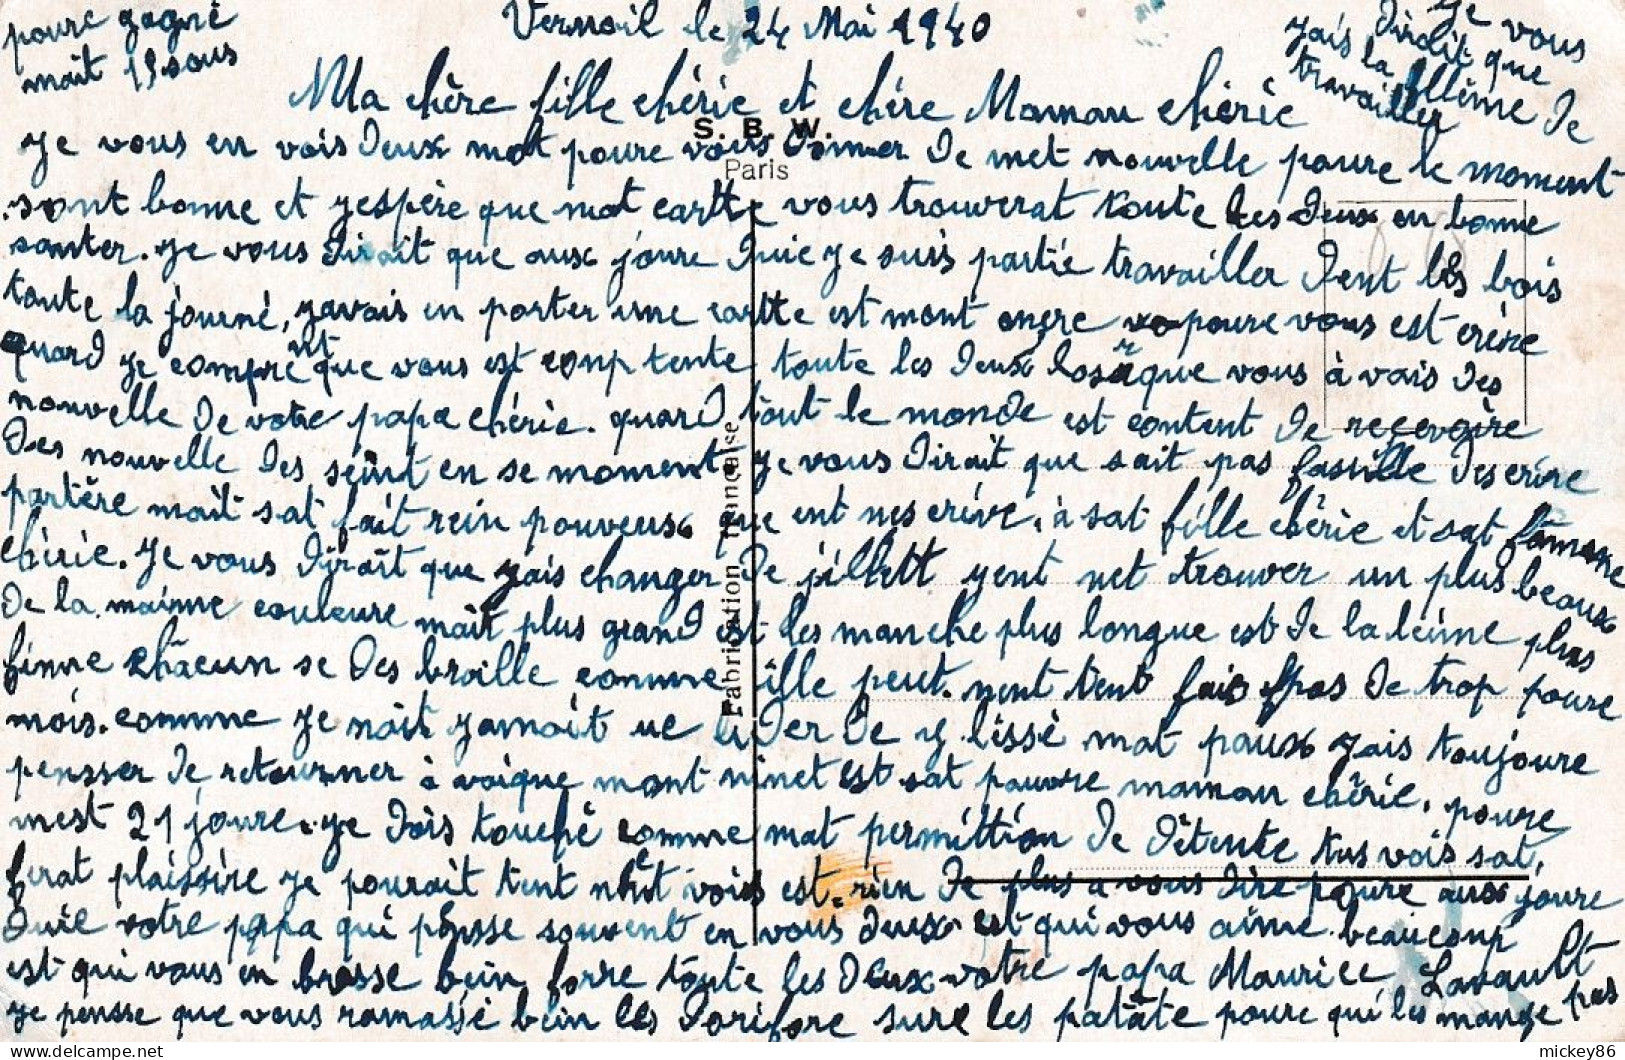 poure gagné
mait 19 sous
Vernoil le 24 Mai 1940
Je vous
dirait que
jais la flléme de
travailler
Ma chère fille chérie et chére Maman chérie
S. B. W.
Paris
Je vous en vois deux mot poure vous donner de met nouvelle poure le moment
sont bonne et jespère que mat cartte vous trouverat toute les deux en bonne
santer. Je vous dirait que aux joure duie je suis partié travailler dent les bois
toute la journé, javais en porter une cartte est mont encre poure vous est crire
quard je comprent que vous est conp tente toute les deux losrque vous à vais des
nouvelle de votre papa chérie. quard tout le monde est content de recevoire
des nouvelle des seint en se moment je vous dirait que sait pas fassille des crire
partère mait sat fait rein pouveux que ent nes crive, à sat fille chérie et sat fammme
chérie. Je vous dirait que jais changer de jillett jent net trouver un plus beaux
de la mainme couleure mait plus grand est les manche plus longue est de la leine plus
finne chacun se des braille comme ille peut. nent tent fais pas de trop poure
mois. comme je nait jamait ue lider de y lissé mat paux jais toujoure
pensser de retourner à voique mont ninet est sat pauvre maman chérie, poure
mest 21 joure. je dois touché comme mat permittion de détente tus vois sat,
ferat plaissire je pourait tent net vois est rien de plus a vous dire poure aux joure
duie votre papa qui pensse souvent en vous deux est qui vous aime beaucoup
est qui vous en brasse bein forre toute les deux votre papa Maurice Lavault
je pensse que vous ramassé bein les dorifore sure les patate poure qui les mange pas
Fabrication Française
mickey86